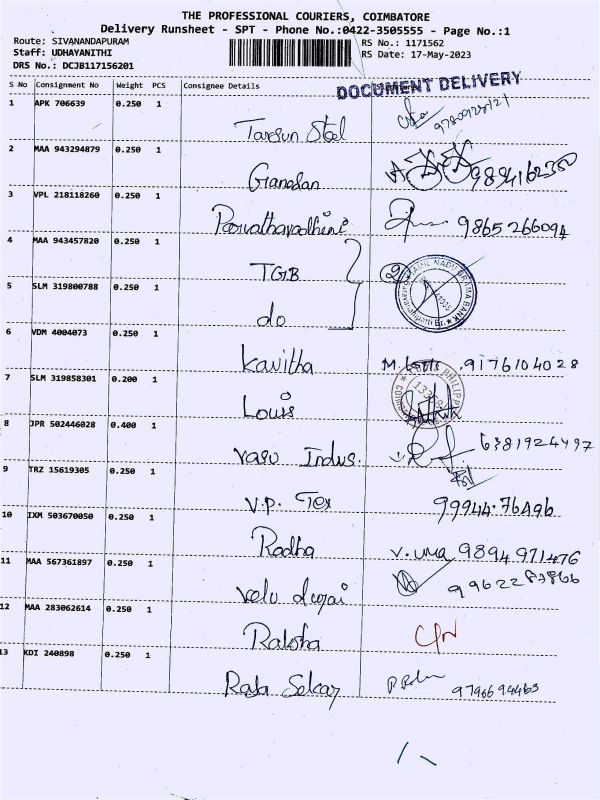 THE PROFESSIONAL COURIERS, COIMBATORE
Delivery Runsheet - SPT - Phone No.:0422-3505555 - Page No.:1
Route: SIVANANDAPURAM
Staff: UDHAYANITHI
DRS No.: DCJB117156201
RS No.: 1171562
RS Date: 17-May-2023
DOCUMENT DELIVERY
S No Consignment No Weight PCS Consignee Details
1 APK 706639 0.250 1 Tarsun Steel
2 MAA 943294879 0.250 1 Ganesan
3 VPL 218118260 0.250 1 9865266094
4 MAA 943457820 0.250 1 TGB 2
TAMIL NADU GRAMA BANK
5 SLM 319800788 0.250 1 do
6 VDM 4004073 0.250 1 Kavitha 9176104028
7 SLM 319858301 0.200 1 Louis
8 JPR 502446028 0.400 1 Vasu Indus 6381924497
9 TRZ 15619305 0.250 1 V.P. Tex 99944.76496
10 IXM 503670050 0.250 1 Radha V. uma 9894971476
11 MAA 567361897 0.250 1 Velu
12 MAA 283062614 0.250 1
13 KDI 240898 0.250 1 Raja Sekar